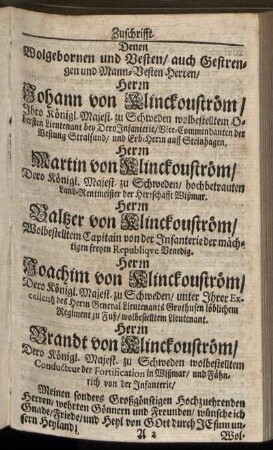 Zuschrifft.
Denen
Wolgebornen und Vesten/ auch Gestren-
gen und Mann-Vesten Herren/
Herrn
Johann von Klinckouström/
Ihro Königl. Majest. zu Schweden wolbestelltem O-
bersten Lieutenant bey Dero Infanterie/ Vice-Commendanten der
Vestung Stralsund/ und Erb-Herrn auff Steinhagen.
Herrn
Martin von Klinckouström/
Dero Königl. Majest. zu Schweden/ hochbetrauten
Land-Rentmeister der Herrschafft Wißmar.
Herrn
Baltzer von Klinckouström/
Wolbestelltem Capitain von der Infanterie der mäch-
tigen freyen Republiqve Venedig.
Herrn
Joachim von Klinckouström/
Dero Königl. Majest. zu Schweden/ unter Ihrer Ex-
cellentz des Herrn General Lieutenants Grothusen löblichem
Regiment zu Fuß/ wolbestelltem Lieutenant.
Herrn
Brandt von Klinckouström/
Dero Königl. Majest. zu Schweden wolbestelltem
Conducteur der Fortification in Wißmar/ und Fähn-
rich von der Infanterie/
Meinen sonders Großgünstigen Hochzuehrenden
Herren/ wehrten Gönnern und Freunden/ wünsche ich
Gnade/ Friede/ und Heyl von GOtt durch JEsum un-
sern Heyland!
A 2
Wol-